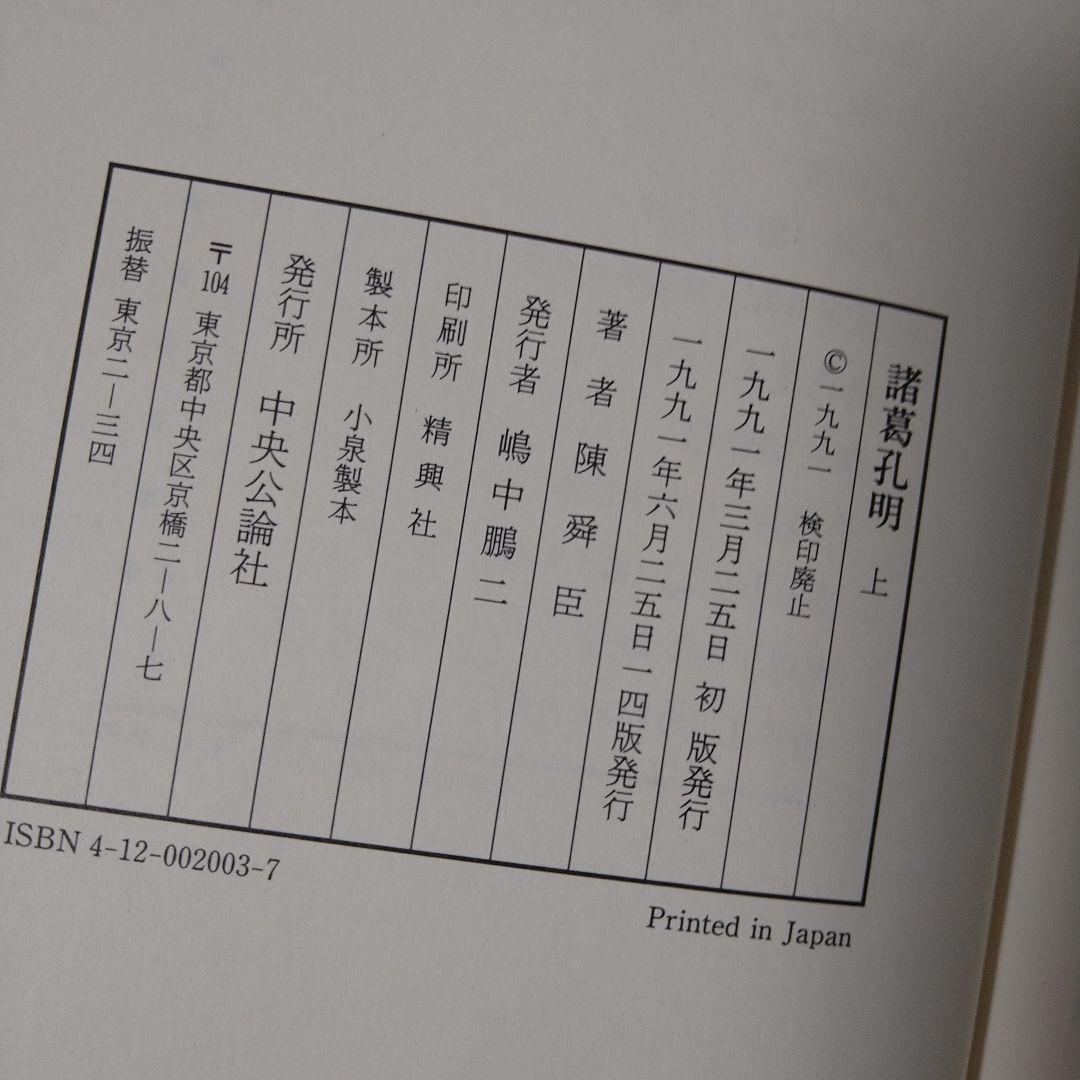 諸葛孔明 上
©一九九一 検印廃止
一九九一年三月二五日 初版発行
一九九一年六月二五日一四版発行
著者 陳舜臣
発行者 嶋中鵬二
印刷所 精興社
製本所 小泉製本
発行所 中央公論社
〒104 東京都中央区京橋二―八―七
振替 東京二―三四
ISBN 4-12-002003-7
Printed in Japan